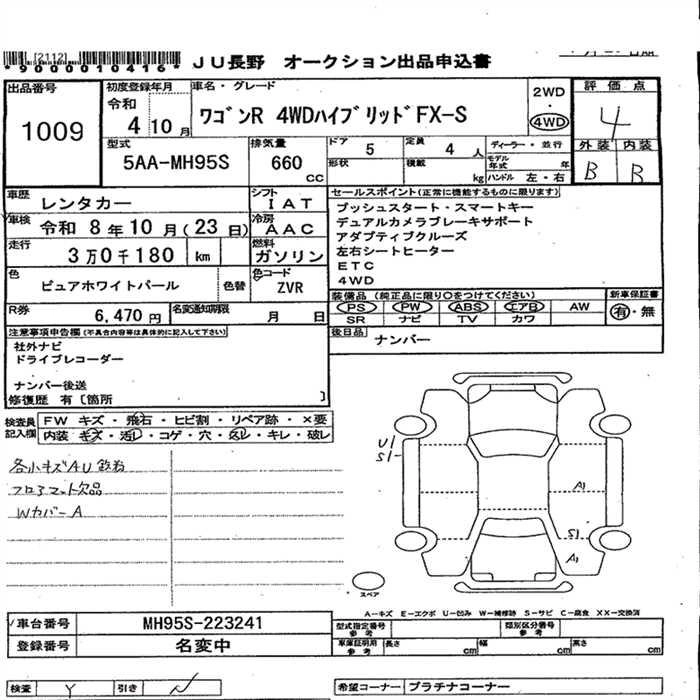 [2112]
*9000010416*
JU長野 オークション出品申込書
出品番号
1009
初度登録年月
令和
4 10月
車名・グレード
ワゴンR 4WDハイブリッドFX-S
2WD
・
4WD
評価点
4
外装 内装
B B
型式
5AA-MH95S
排気量
660
cc
ドア
5
定員
4 人
形状
積載
kg
ディーラー・並行
モデル年式 年
ハンドル 左・右
車歴
レンタカー
シフト
IAT
車検
令和 8年10月(23日)
冷房
AAC
走行
3万0千180 km
燃料
ガソリン
色
ピュアホワイトパール
色替
色コード
ZVR
R券
6,470円
名変通知期限
月 日
セールスポイント(正常に機能するものに限ります)
プッシュスタート・スマートキー
デュアルカメラブレーキサポート
アダプティブクルーズ
左右シートヒーター
ETC
4WD
装備品 (純正品に限り○をつけてください)
PS PW ABS エアB AW
SR ナビ TV カワ
新車保証書
有・無
後日品
ナンバー
注意事項申告欄(不具合内容等は具体的に記入して下さい)
社外ナビ
ドライブレコーダー
ナンバー後送
修復歴 有〔箇所 〕
検査員記入欄
FW キズ・飛石・ヒビ割・リペア跡・×要
内装・キズ・汚レ・コゲ・穴・スレ・キレ・破レ
各小キズAU
フロアマット欠品
WカバーA
U1
S1
A1
S1
A1
スペア
A-キズ E-エクボ U-凹み W-補修跡 S-サビ C-腐食 XX-交換済
車台番号
MH95S-223241
登録番号
名変中
型式指定番号
参考
類別区分番号
参考
車庫証明用
参考
長さ cm
幅 cm
高さ cm
検査 Y
引き
希望コーナー
プラチナコーナー